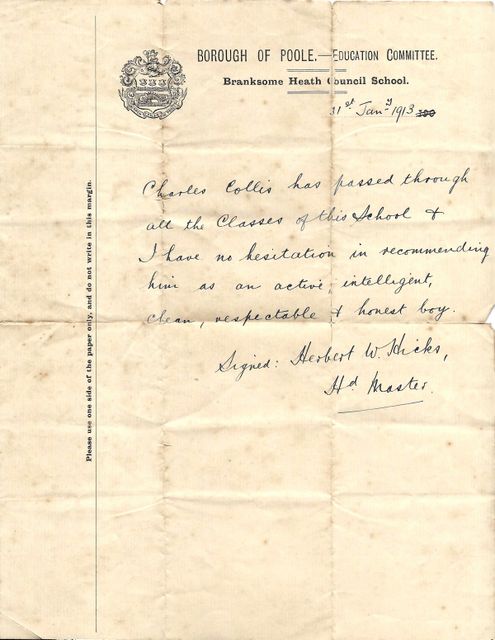 BOROUGH OF POOLE.—EDUCATION COMMITTEE.
Branksome Heath Council School.
31st Jany 1913
Charles Collis has passed through
all the Classes of this School &
I have no hesitation in recommending
him as an active, intelligent,
clean, respectable & honest boy.
Signed: Herbert W. Hicks,
Hd Master.
Please use one side of the paper only, and do not write in this margin.